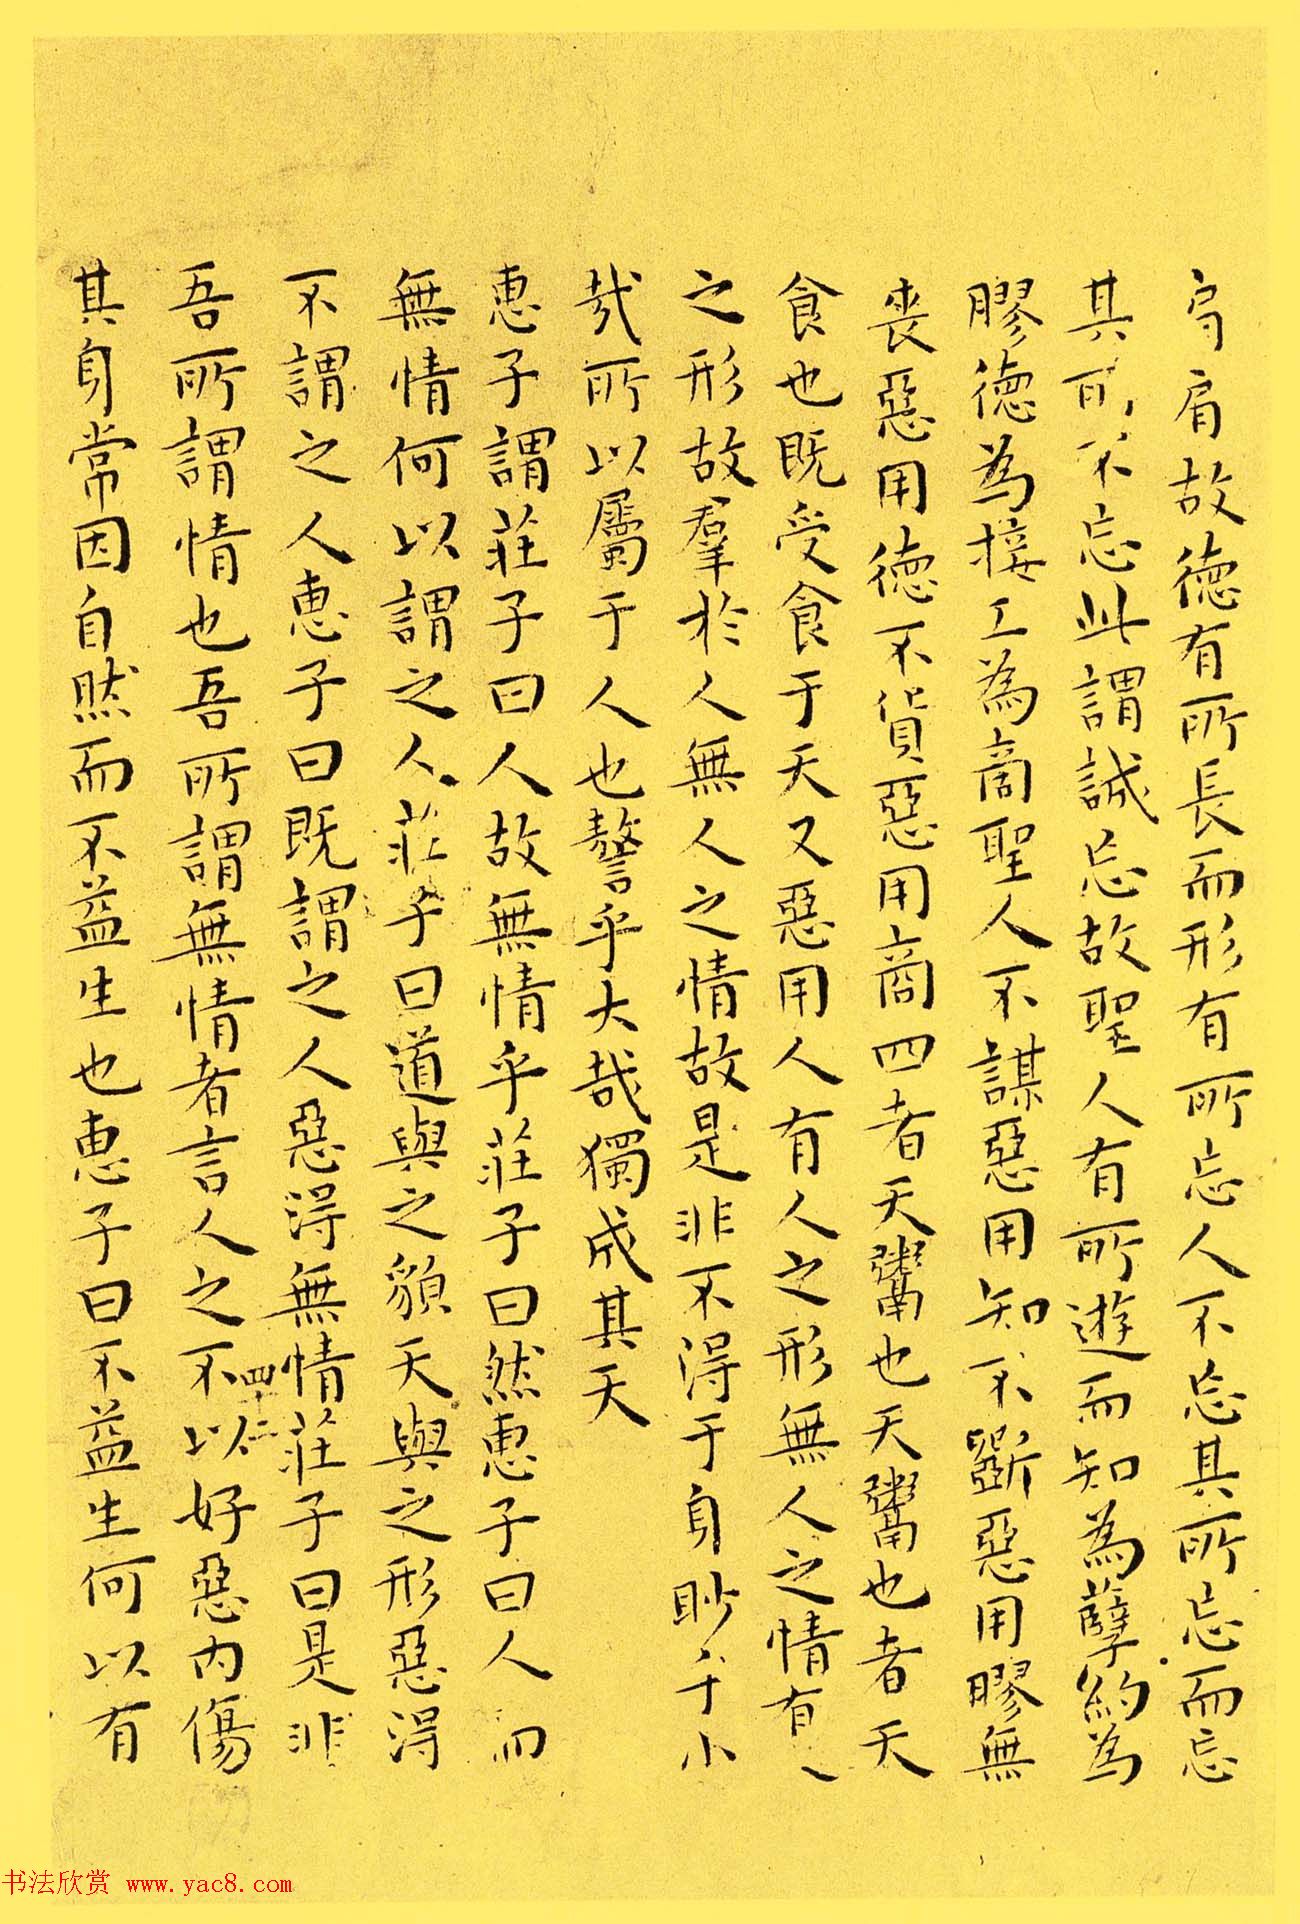 肩肩故德有所長而形有所忘人不忘其所忘而忘
其所不忘此謂誠忘故聖人有所遊而知為孽約為
膠德為接工為商聖人不謀惡用知不斵惡用膠無
喪惡用德不貨惡用商四者天鬻也天鬻也者天
食也既受食于天又惡用人有人之形無人之情有人
之形故羣於人無人之情故是非不得于身眇乎小
哉所以屬于人也謷乎大哉獨成其天
惠子謂莊子曰人故無情乎莊子曰然惠子曰人而
無情何以謂之人莊子曰道與之貌天與之形惡得
不謂之人惠子曰既謂之人惡得無情莊子曰是非
吾所謂情也吾所謂無情者言人之不以好惡內傷
其身常因自然而不益生也惠子曰不益生何以有
四十二
书法欣赏 www.yac8.com